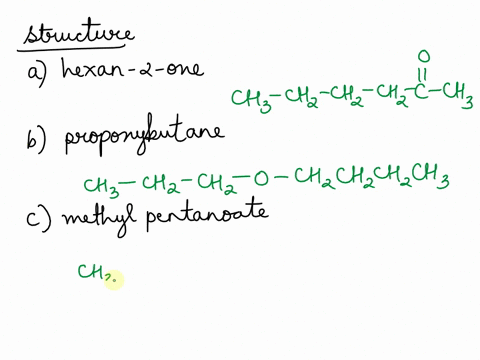 structure
a) hexan-2-one
O
||
CH3-CH2-CH2-CH2-C-CH3
b) proponybutane
CH3-CH2-CH2-O-CH2CH2CH2CH3
c) methyl pentanoate
CH3